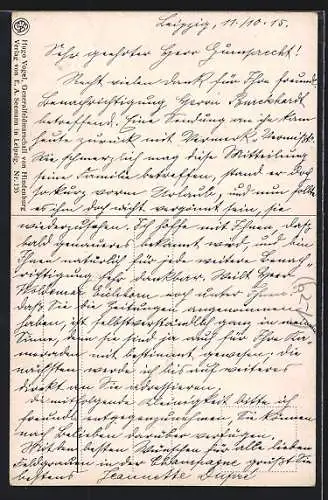 Leipzig, 11/10.15.
Sehr geehrter Herr Gumprecht!
Recht vielen Dank für Ihre freundl.
Benachrichtigung, Herrn Burckhardt
betreffend. Eine Sendung an ihn kam
heute zurück mit Vermerk „Vermißt“.
Wie schmerzlich mag diese Mitteilung
seine Familie betreffen, stand er doch
so kurz vorm Urlaub, und nun sollte
es ihm doch nicht vergönnt sein, sie
wiederzusehen. Ich hoffe mit Ihnen, daß
bald genaueres bekannt wird, und bin
Ihnen natürlich für jede weitere Benach-
richtigung sehr dankbar. Mit Herrn
noch unter Ihnen
daß Sie die Zeitungen angenommen
haben, ist selbstverständlich ganz in meinem
Sinne, denn sie sind ja auch für Ihre Ka-
meraden mit bestimmt gewesen; die
nächsten werde ich bis auf weiteres
direkt an Sie adressieren.
Beimitfolgende Kleinigkeit bitte ich
freundl. entgegenzunehmen, Sie können
nach Belieben darüber verfügen.
Mit den besten Wünschen für alle lieben
Feldgrauen in der Champagne grüßt Sie
bestens Jeannette Dupré.
Hugo Vogel, Generalfeldmarschall von Hindenburg
Verlag von E. A. Seemann in Leipzig. Nr. 135